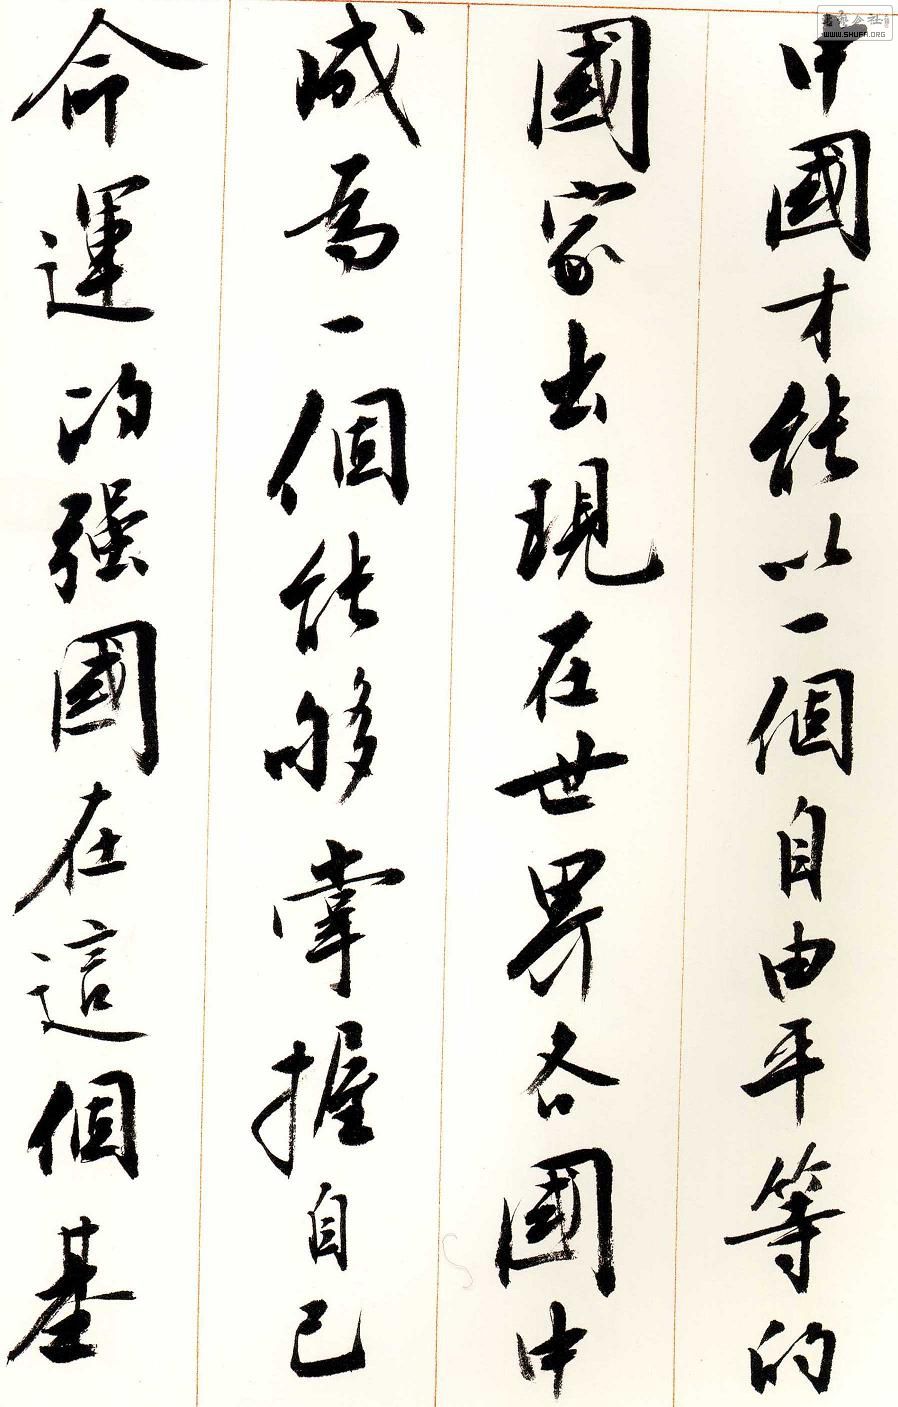 中國才能以一個自由平等的
國家出現在世界各國中
成為一個能够掌握自己
命運的强國在這個基
WWW.SHUFA.ORG